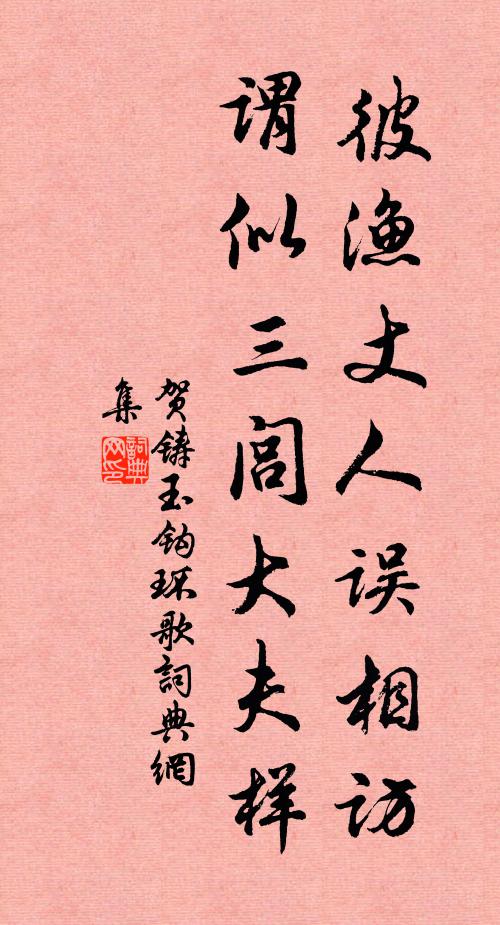 彼渔丈人误相访
谓似三闾大夫样
贺铸玉钩环歌詞典網
集
詞典网印